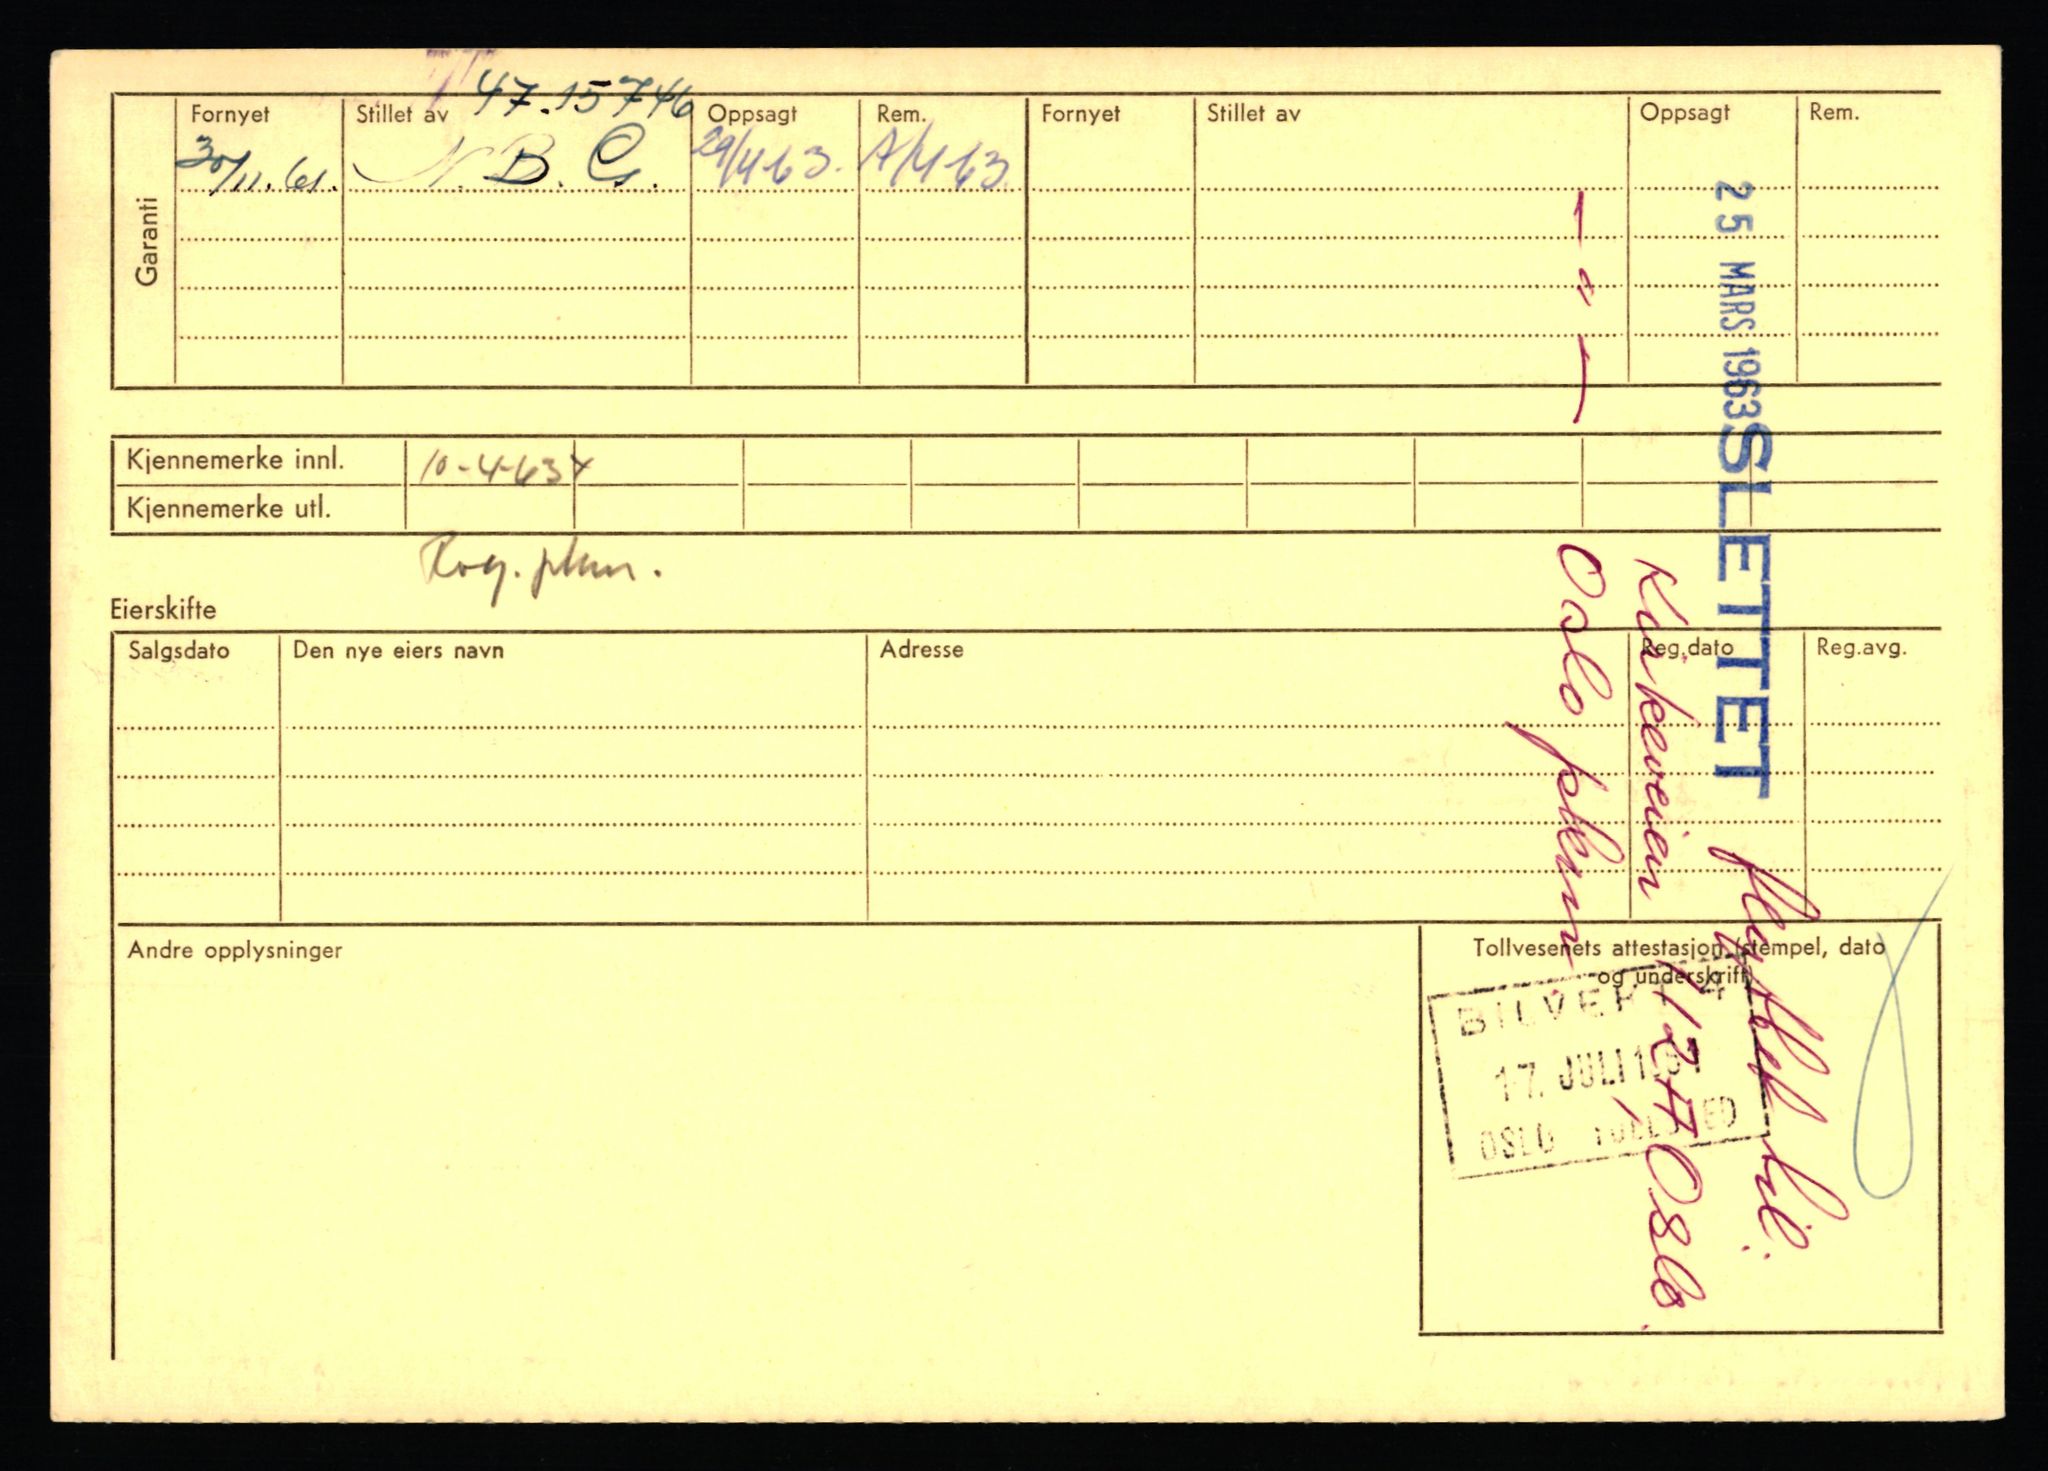 47.15746
Garanti
Fornyet Stillet av Oppsagt Rem. Fornyet Stillet av Oppsagt Rem.
30/11.61. N. B. G. 29/4-63. A/4-63.
Kjennemerke innl. 10-4-63
Kjennemerke utl.
Rog. pkm.
Eierskifte
Salgsdato Den nye eiers navn Adresse Reg.dato Reg.avg.
Andre opplysninger
Tollvesenets attestasjon (stempel, dato
og underskrift)
17. JULI 1961
OSLO TOLLSTED
25 MARS 1963 SLETTET
flyttet til:
Kirkeveien 112A Oslo.
Oslo pkm
— " —